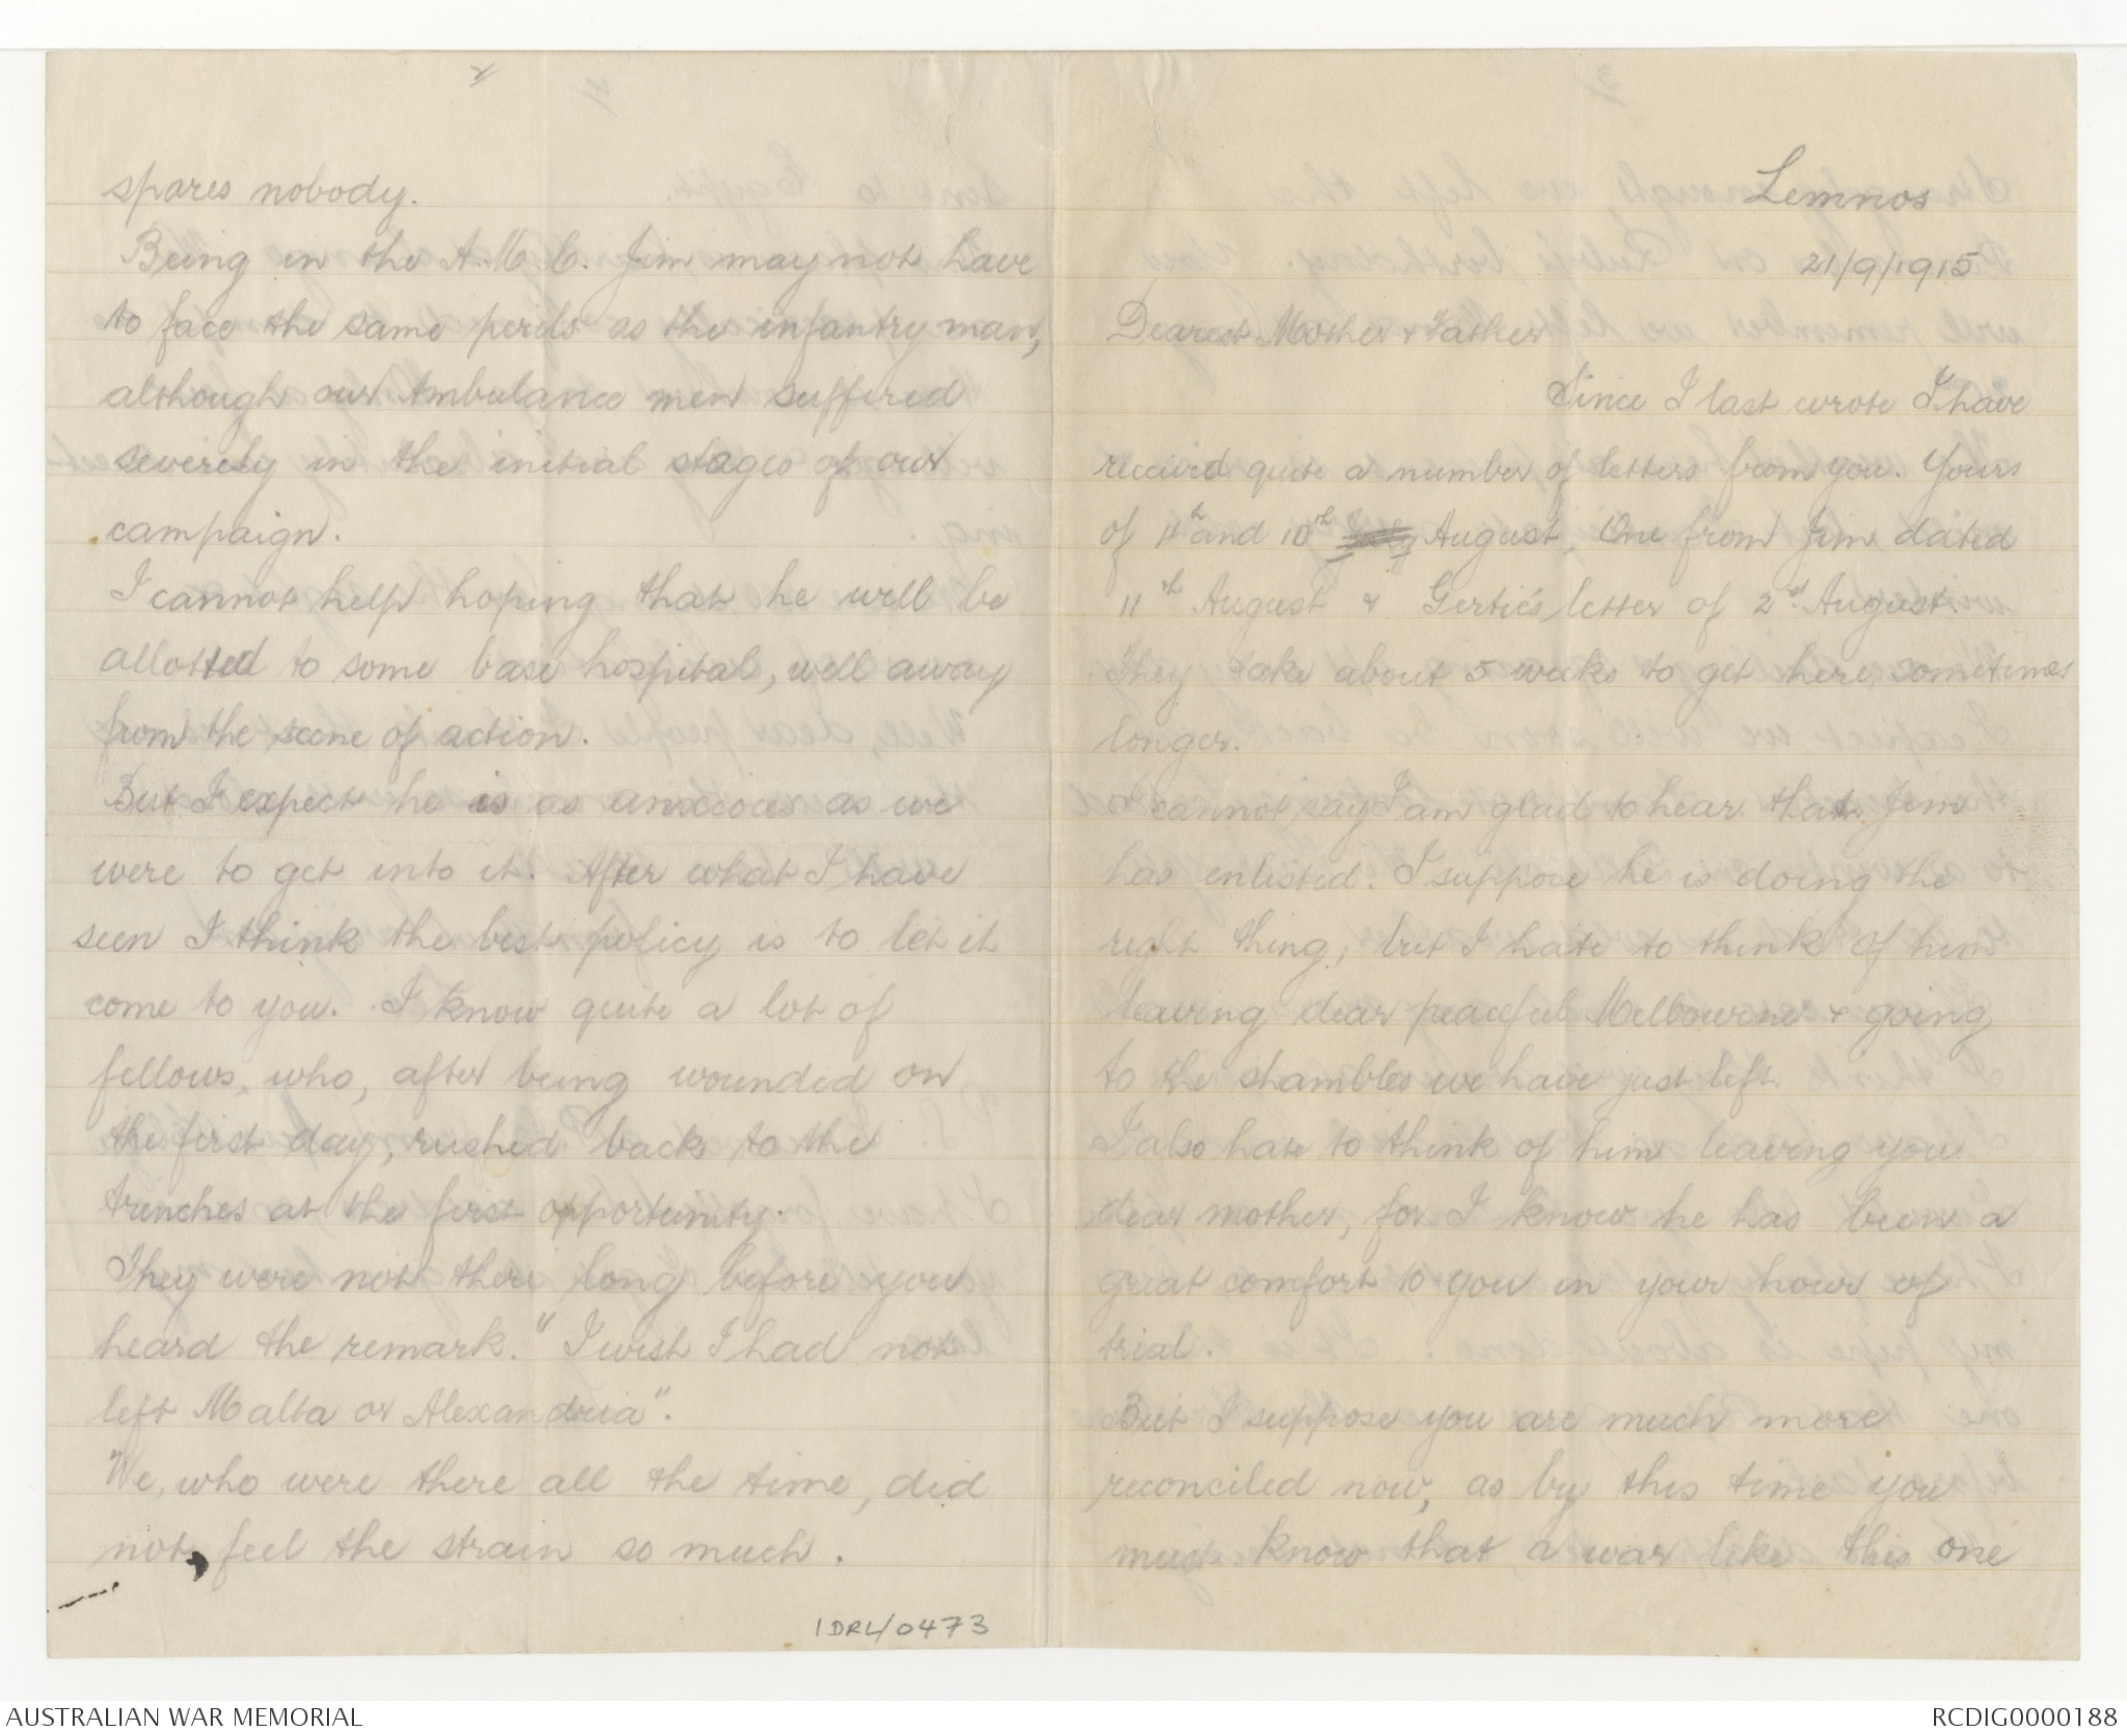 Lemnos
21/9/1915
Dearest Mother & Father
Since I last wrote I have
received quite a number of letters from you. Yours
of 4th and 10th July August, One from Jim dated
11th August & Gertie's letter of 2nd August.
They take about 5 weeks to get here, sometimes
longer.
I cannot say I am glad to hear that Jim
has enlisted. I suppose he is doing the
right thing, but I hate to think of him
leaving dear peaceful Melbourne & going
to the shambles we have just left.
I also hate to think of him leaving you
dear mother, for I know he has been a
great comfort to you in your hour of
trial.
But I suppose you are much more
reconciled now, as by this time you
must know that a war like this one
2/
spares nobody.
Being in the A.M.C. Jim may not have
to face the same perils as the infantry man,
although our Ambulance men suffered
severely in the initial stages of our
campaign.
I cannot help hoping that he will be
allotted to some base hospital, well away
from the scene of action.
But I expect he is as anxious as we
were to get into it. After what I have
seen I think the best policy is to let it
come to you. I know quite a lot of
fellows, who, after being wounded on
the first day, rushed back to the
trenches at the first opportunity.
They were not there long before you
heard the remark. "I wish I had not
left Malta or Alexandria".
We, who were there all the time, did
not feel the strain so much.
1DRL/0473
AUSTRALIAN WAR MEMORIAL
RCDIG0000188